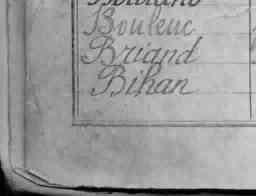 Bouleuc
Briand
Bihan